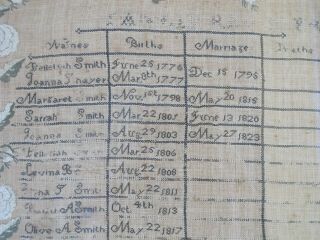 Names Births Marriage Deaths
Smith June 25 1776 Dec 15 1796
Joanna Thayer Mar 8th 1777
Margaret Smith Nov 1st 1798 May 20 1816
Sarah Smith Mar 22 1801 June 13 1820
Joanna Smith Aug 29 1803 May 27 1823
Mar 25 1806
Levina Aug 22 1808
Smit May 22 1811
A Smith Oct 4th 1813
Olive A Smith May 22 1817